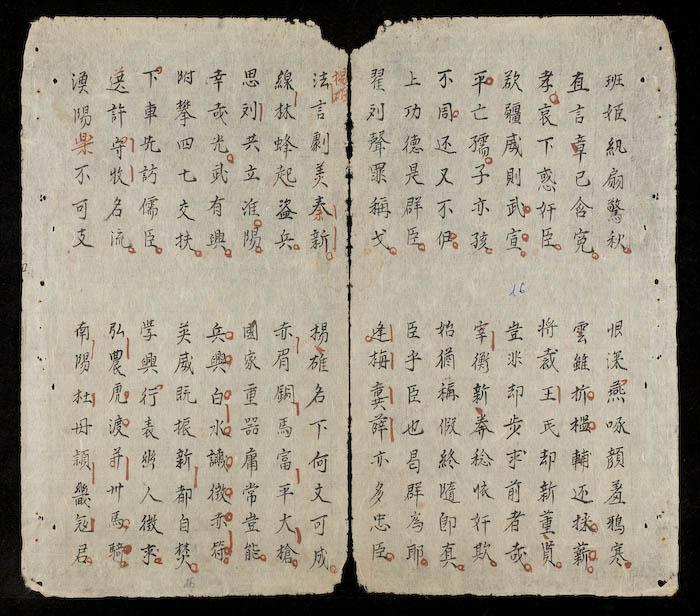 班姬紈扇驚秋
恨深燕啄顏羞鴉寒
直言章已含冤
雲雖折檻輔还採薪
孝哀下惑奸臣
將裁王氏却新董賢
欲疆威則武宣
豈非却步求前者哉
平亡孺子亦孩
宰衡新莽稔奸欺
不周还又不伊
始猶稱假終隨卽真
上功德是群臣
臣乎臣也曷群為耶
翟刘聲罪稱戈
逢梅龔薛亦多忠臣
16
揚雄
法言劇美秦新
揚雄名下何文可成
線林蜂起盜兵
赤眉銅馬富平大槍
思刘共立淮陽
國家重器庸常豈能
幸哉光武有興
兵興白水讖徵赤符
附攀四七交扶
英威既振新都自焚
下車先訪儒臣
學興行表幽人徵求
選許守牧名流
弘農虎渡并州馬騎
漁陽樂不可支
南陽杜母頴寇君